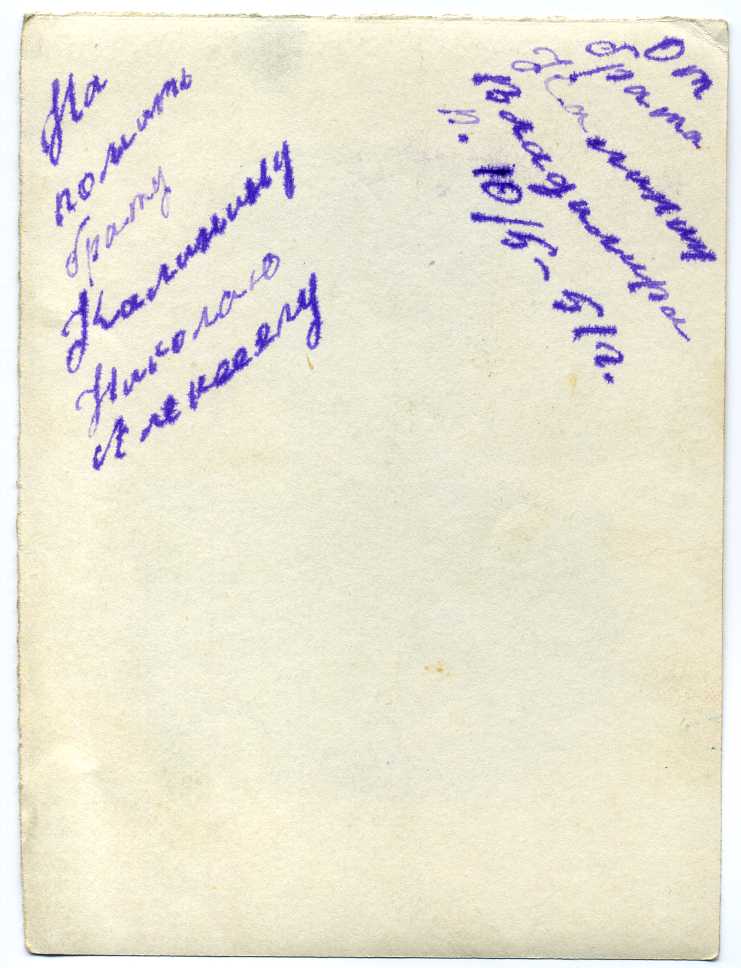 На
помать
брату
Калинину
Николаю
Алексеелу
От
брата
Калинин
Владимира
10/5-51г.